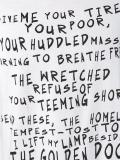 GIVE ME YOUR TIRE
YOUR POOR,
YOUR HUDDLED MASS
RNING TO BREATHE FR
THE WRETCHED
REFUSE OF
YOUR TEEMING SHOR
ND THESE, THE HOMEL
EMPEST-TOST TO
I LIFT MY LAMP BESID
THE GOLDEN DOO